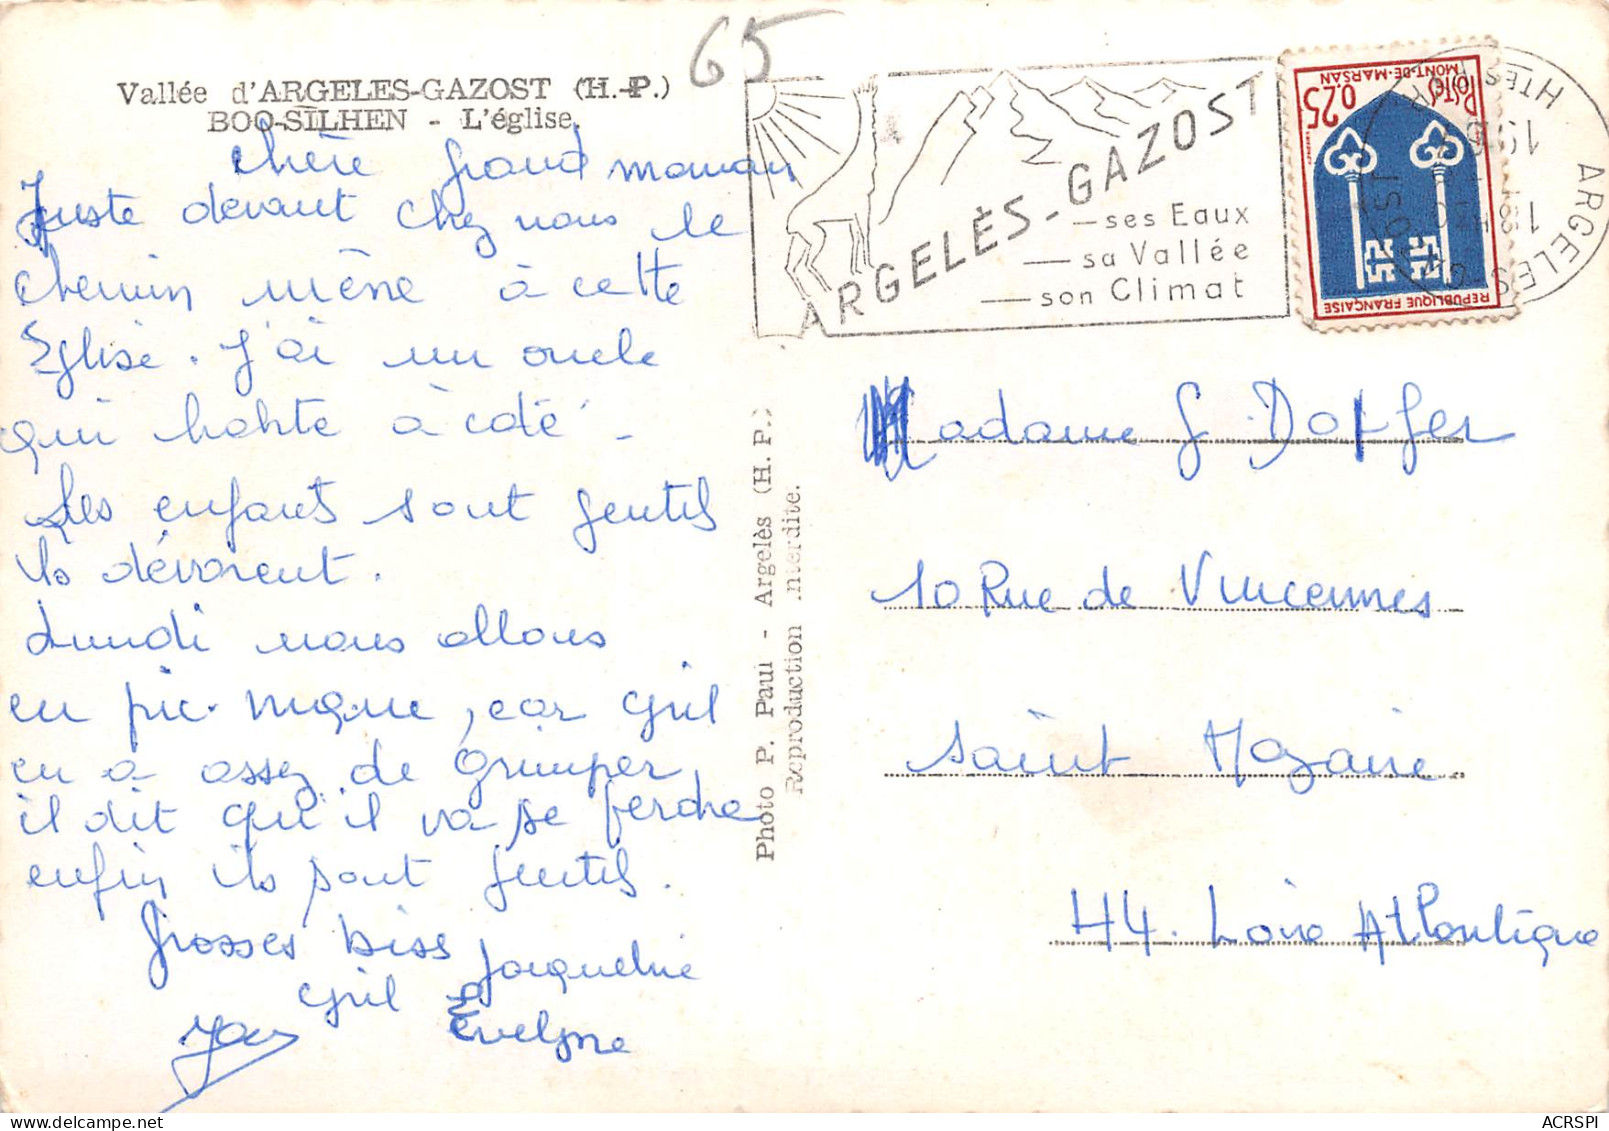 65
Vallée d'ARGELES-GAZOST (H.-P.)
BOO-SILHEN - L'église.
Chère grand maman
Juste devant chez nous le
chemin mène à cette
Eglise. J'ai un oncle
qui habite à côté -
Les enfants sont gentils
ils dévorent.
Lundi nous allons
en pic-nique, car Cyril
en a assez de Grimper,
il dit qu'il va se
enfin ils sont gentils.
Grosses bises
Jacqueline
Cyril
Evelyne
Photo P. Paul - Argelès (H. P.)
Reproduction interdite.
ARGELÈS-GAZOST
ses Eaux
sa Vallée
son Climat
0,25
POSTES
MONT-DE-MARSAN
REPUBLIQUE FRANÇAISE
ARGELES
Madame G. Dorfer
10 Rue de Vincennes
Saint Nazaire
44. Loire Atlantique
ACRSPI